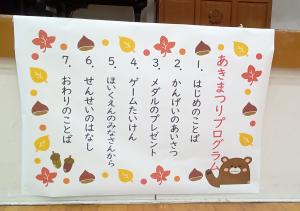 あきまつりプログラム
1. はじめのことば
2. かんげいのあいさつ
3. メダルのプレゼント
4. ゲームたいけん
5. ほいくえんのみなさんから
6. せんせいのはなし
7. おわりのことば